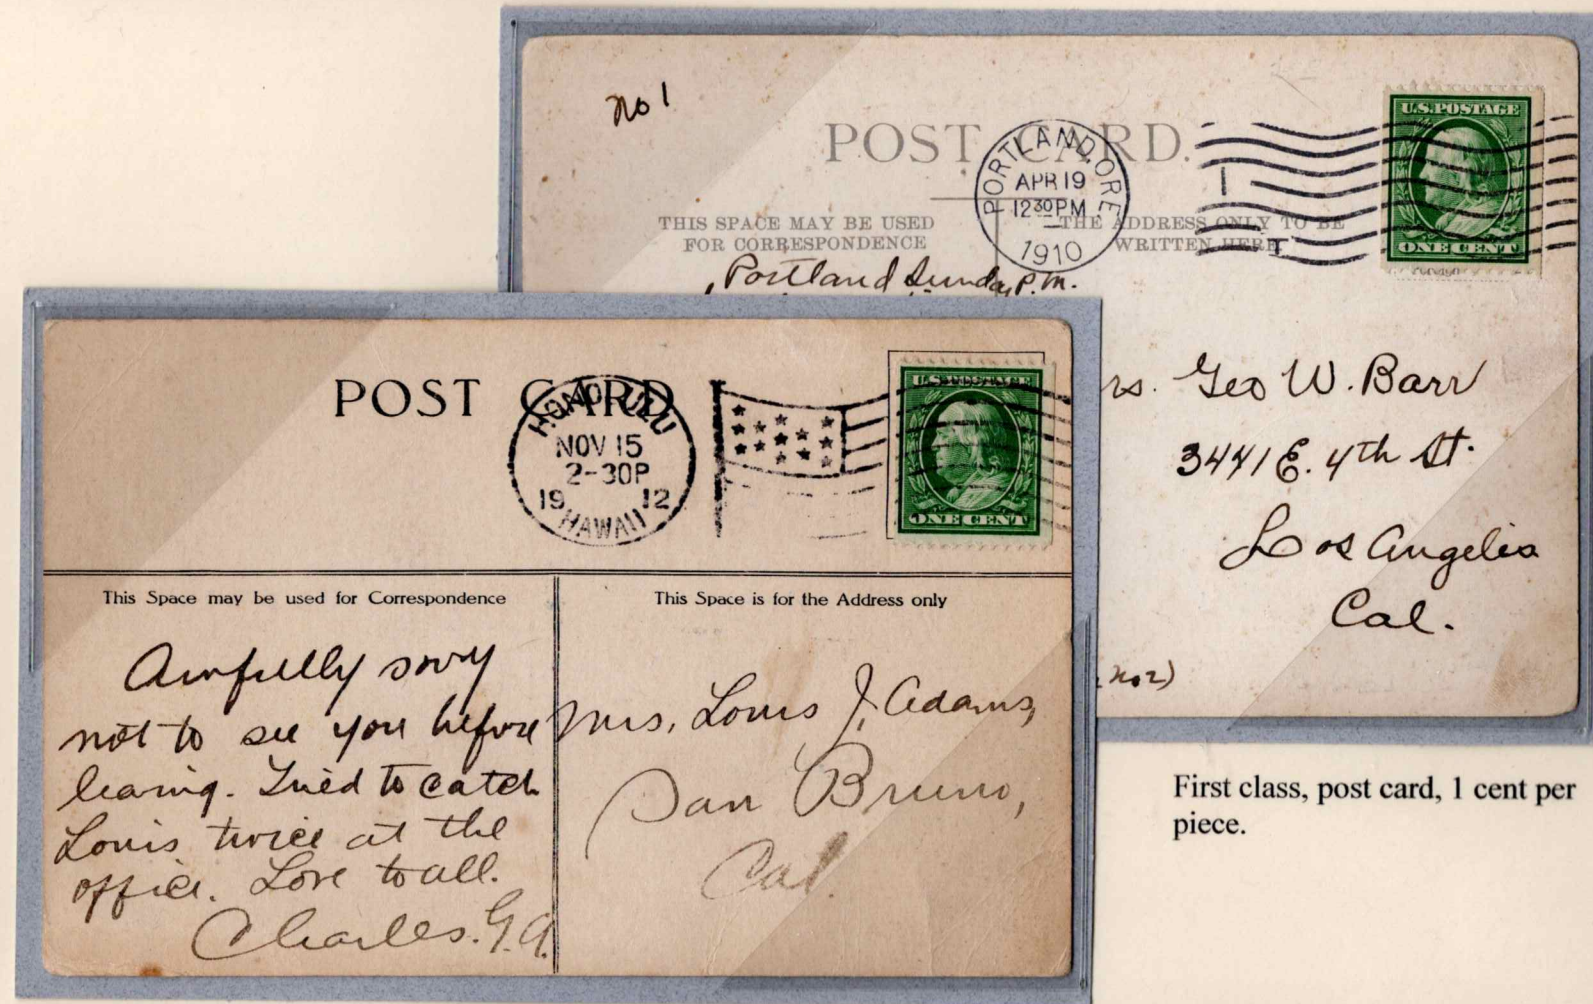 no 1
POST CARD.
PORTLAND, ORE
APR 19
12 30 PM
1910
U.S. POSTAGE
ONE CENT
THIS SPACE MAY BE USED
FOR CORRESPONDENCE
THE ADDRESS ONLY TO BE
WRITTEN HERE
Portland Sunday P.M.
rs. Geo W. Barr
3441 E. 4th St.
Los Angeles
Cal.
no 2)
POST CARD
HONOLULU
NOV 15
2-30P
19 12
HAWAII
U.S. POSTAGE
ONE CENT
This Space may be used for Correspondence
Awfully sorry
not to see you before
leaving. Tried to catch
Louis twice at the
office. Love to all.
Charles. G. A.
This Space is for the Address only
Mrs. Louis J. Adams,
San Bruno,
Cal.
First class, post card, 1 cent per
piece.